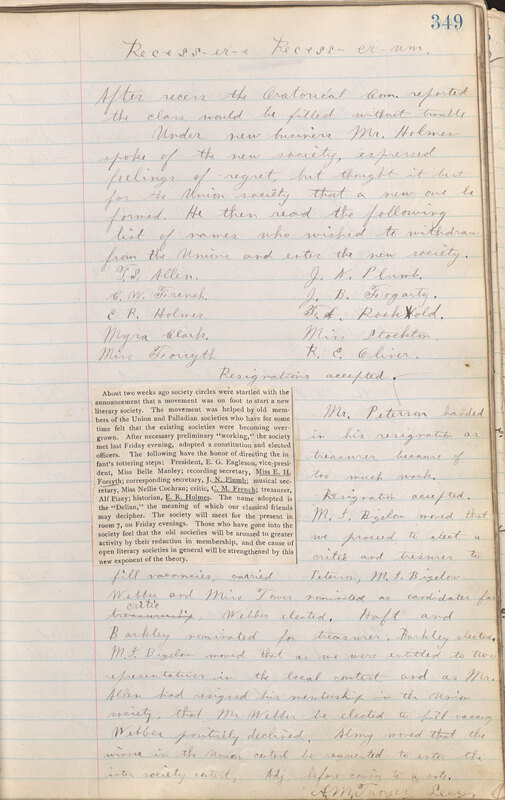 349
Recess-er-e Recess-er-um.
After recess the Oratorical Com. reported
the class would be filled without trouble
Under new business Mr. Holmes
spoke of the new society, expressed
feelings of regret, but thought it best
for the Union society that a new one be
formed. He then read the following
list of names who wished to withdraw
from the Unions and enter the new society.
T. S. Allen. J. N. Plumb.
C. W. French. J. B. Fogarty.
E. R. Holmes F. A. Rockhold.
Myra Clark. Miss Stockton.
Miss Forsyth R. E. Oliver.
Resignations accepted.
About two weeks ago society circles were startled with the
announcement that a movement was on foot to start a new
literary society. The movement was helped by old mem-
bers of the Union and Palladian societies who have for some
time felt that the existing societies were becoming over-
grown. After necessary preliminary "working," the society
met last Friday evening, adopted a constitution and elected
officers. The following have the honor of directing the in-
fant's tottering steps: President, E. G. Eagleson, vice-presi-
dent, Miss Belle Manley; recording secretary, Miss E. H.
Forsyth; corresponding secretary, J. N. Plumb; musical sec-
retary, Miss Nellie Cochran; critic, C. M. French; treasurer,
Alf Pizey; historian, E. R. Holmes. The name adopted is
the "Delian," the meaning of which our classical friends
may decipher. The society will meet for the present in
room 7, on Friday evenings. Those who have gone into the
society feel that the old societies will be aroused to greater
activity by their reduction in membership, and the cause of
open literary societies in general will be strengthened by this
new exponent of the theory.
Mr. Peterson handed
in his resignation as
treasurer because of
too much work.
Resignation accepted.
M. F. Bigelow moved that
we proceed to elect a
critic and tresurer to
fill vacancies, carried Peterson, M. F. Bigelow
Webber and Miss Tower nominated as candidates for
critic
treasurership, Webber elected. Haft and
Barkley nominated for treasurer. Barkley elected.
M. F. Bigelow moved that as we were entitled to two
representatives in the local contest and as Mr.
Allen had resigned his membership in the Union
society, that Mr Webber be elected to fill vacancy
Webber positively declined. Almy moved that the
winner in the Union contest be requested to enter the
inter society contest. Adj. before coming to a vote.
A. M. Troyer Secy.